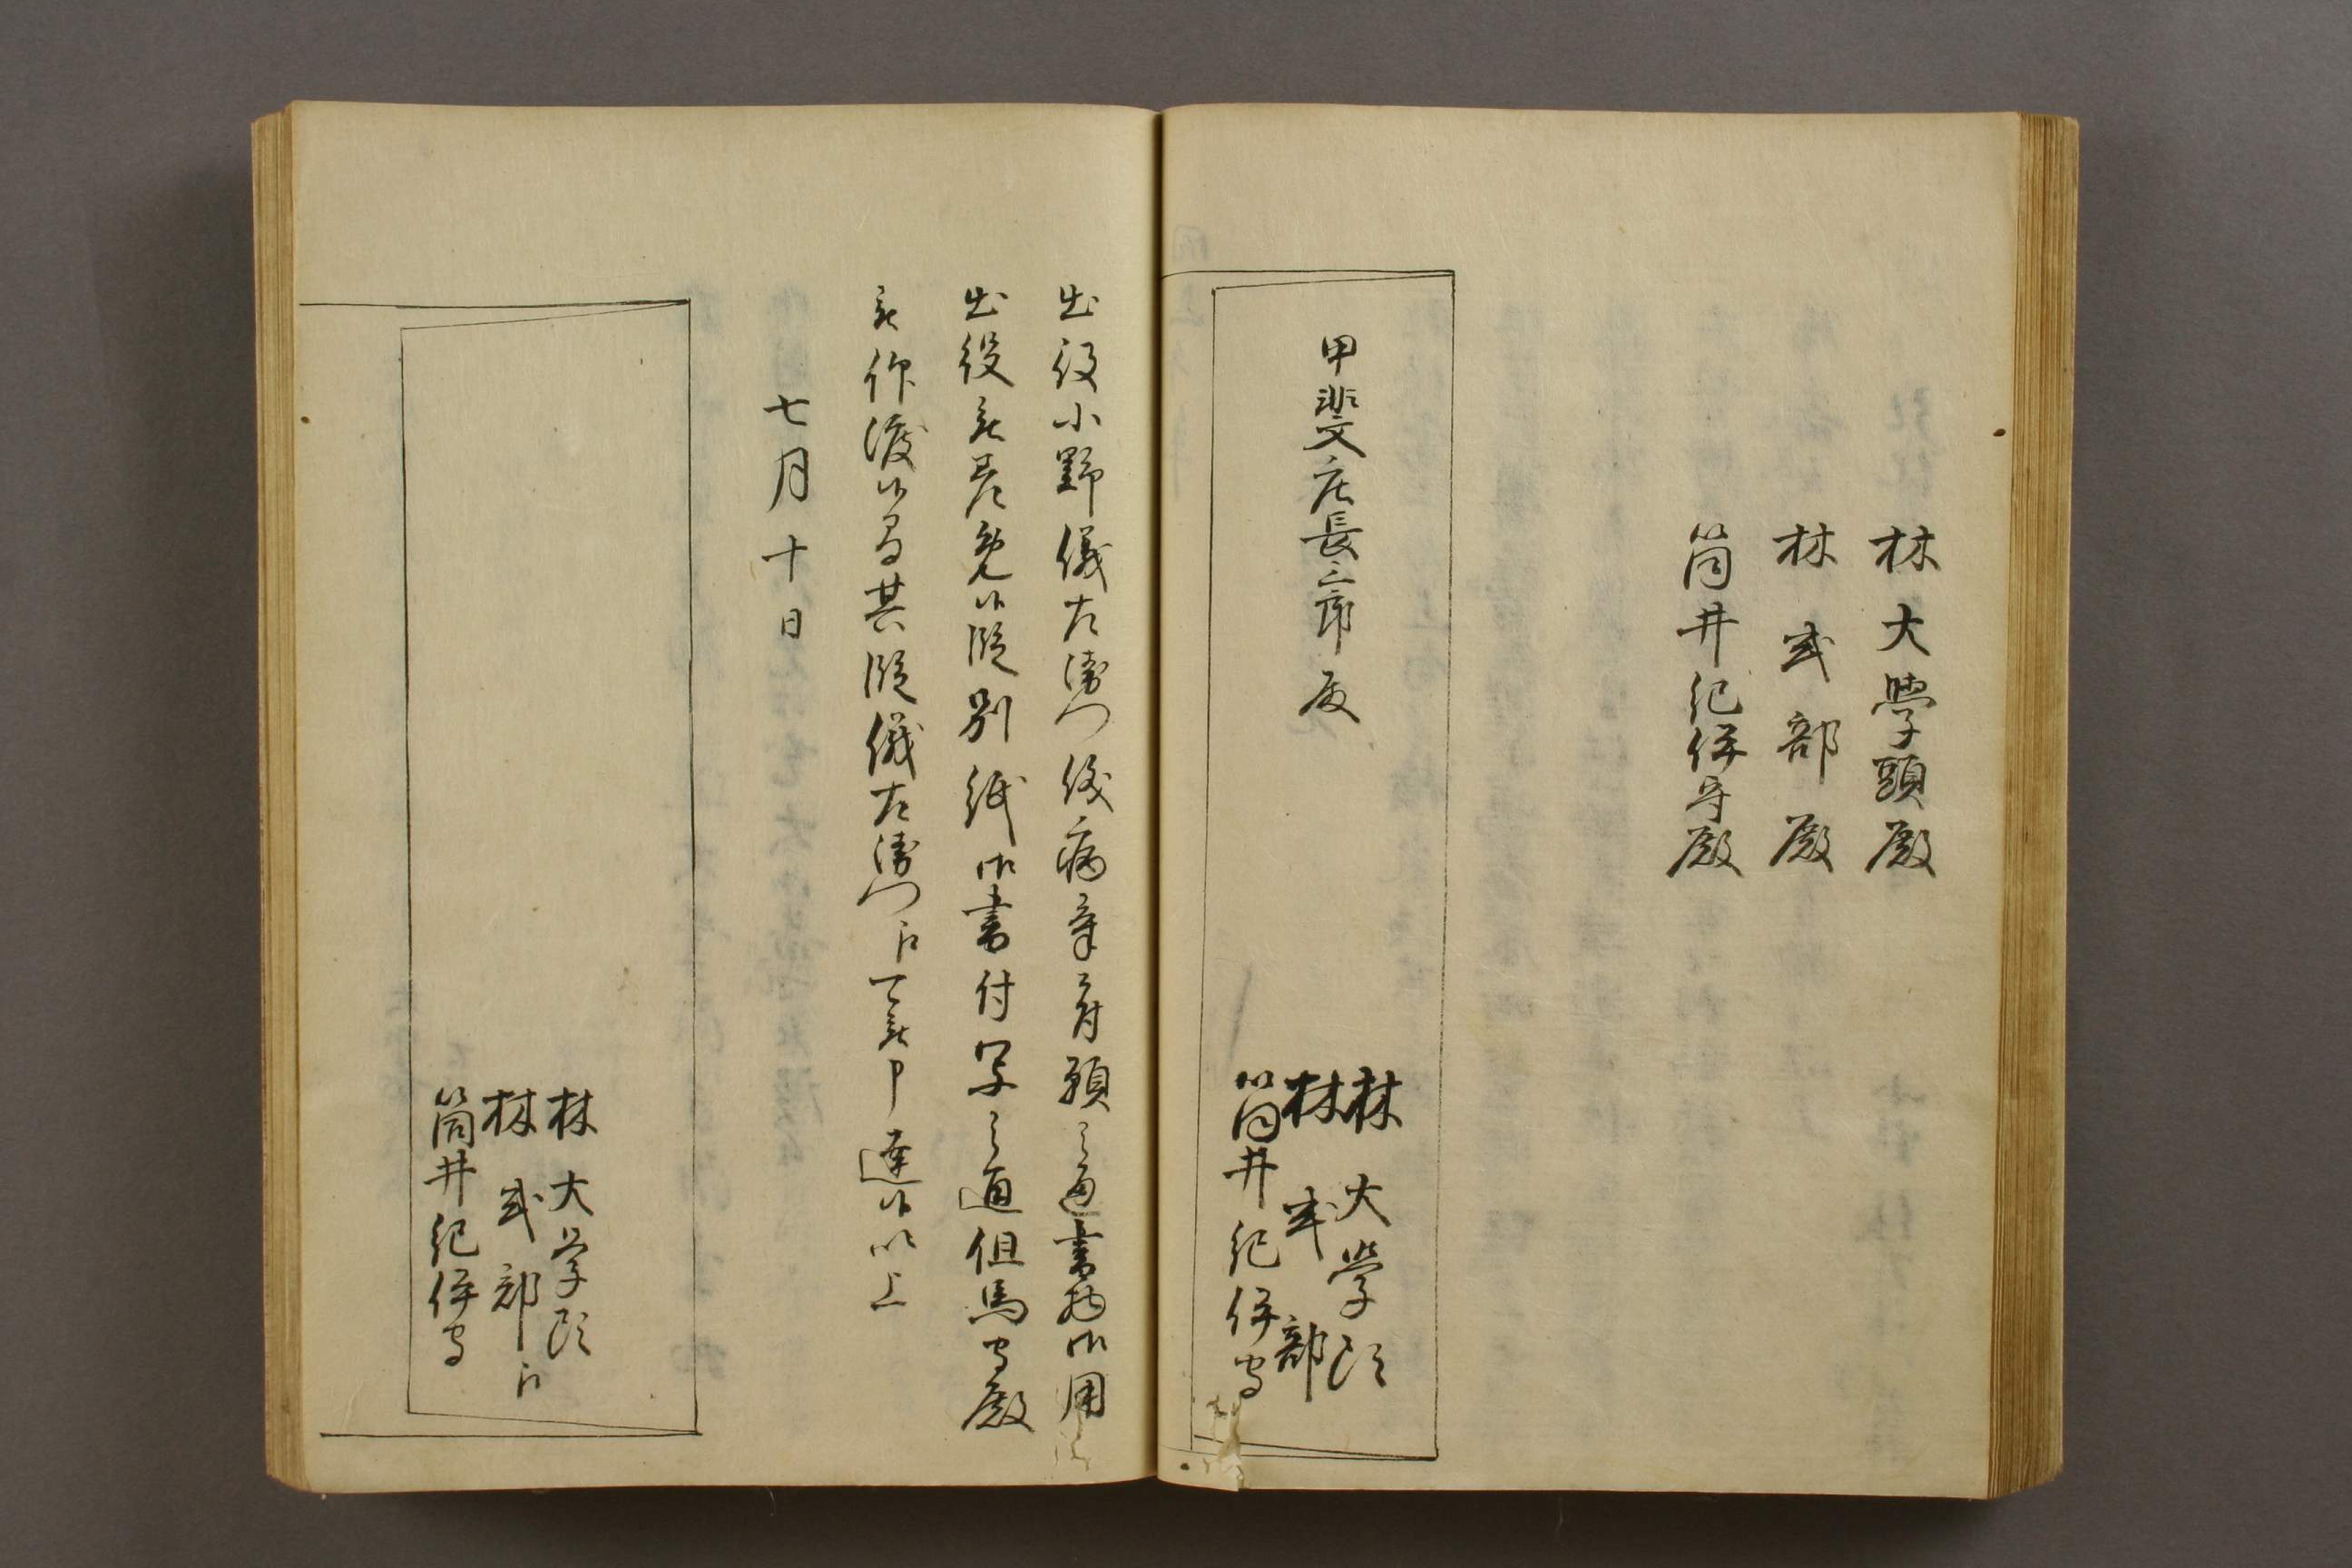 林大學頭殿
林式部殿
筒井紀伊守殿
甲斐庄長三郎殿
林大學頭
林式部
筒井紀伊守
出役小野儀左衛門儀病身ニ付願之通書物御用
出役被差免候段別紙御書付写之通但馬守殿
被仰渡候間其段儀左衛門江可被申達候以上
七月十日
林大学頭
林式部
筒井紀伊守